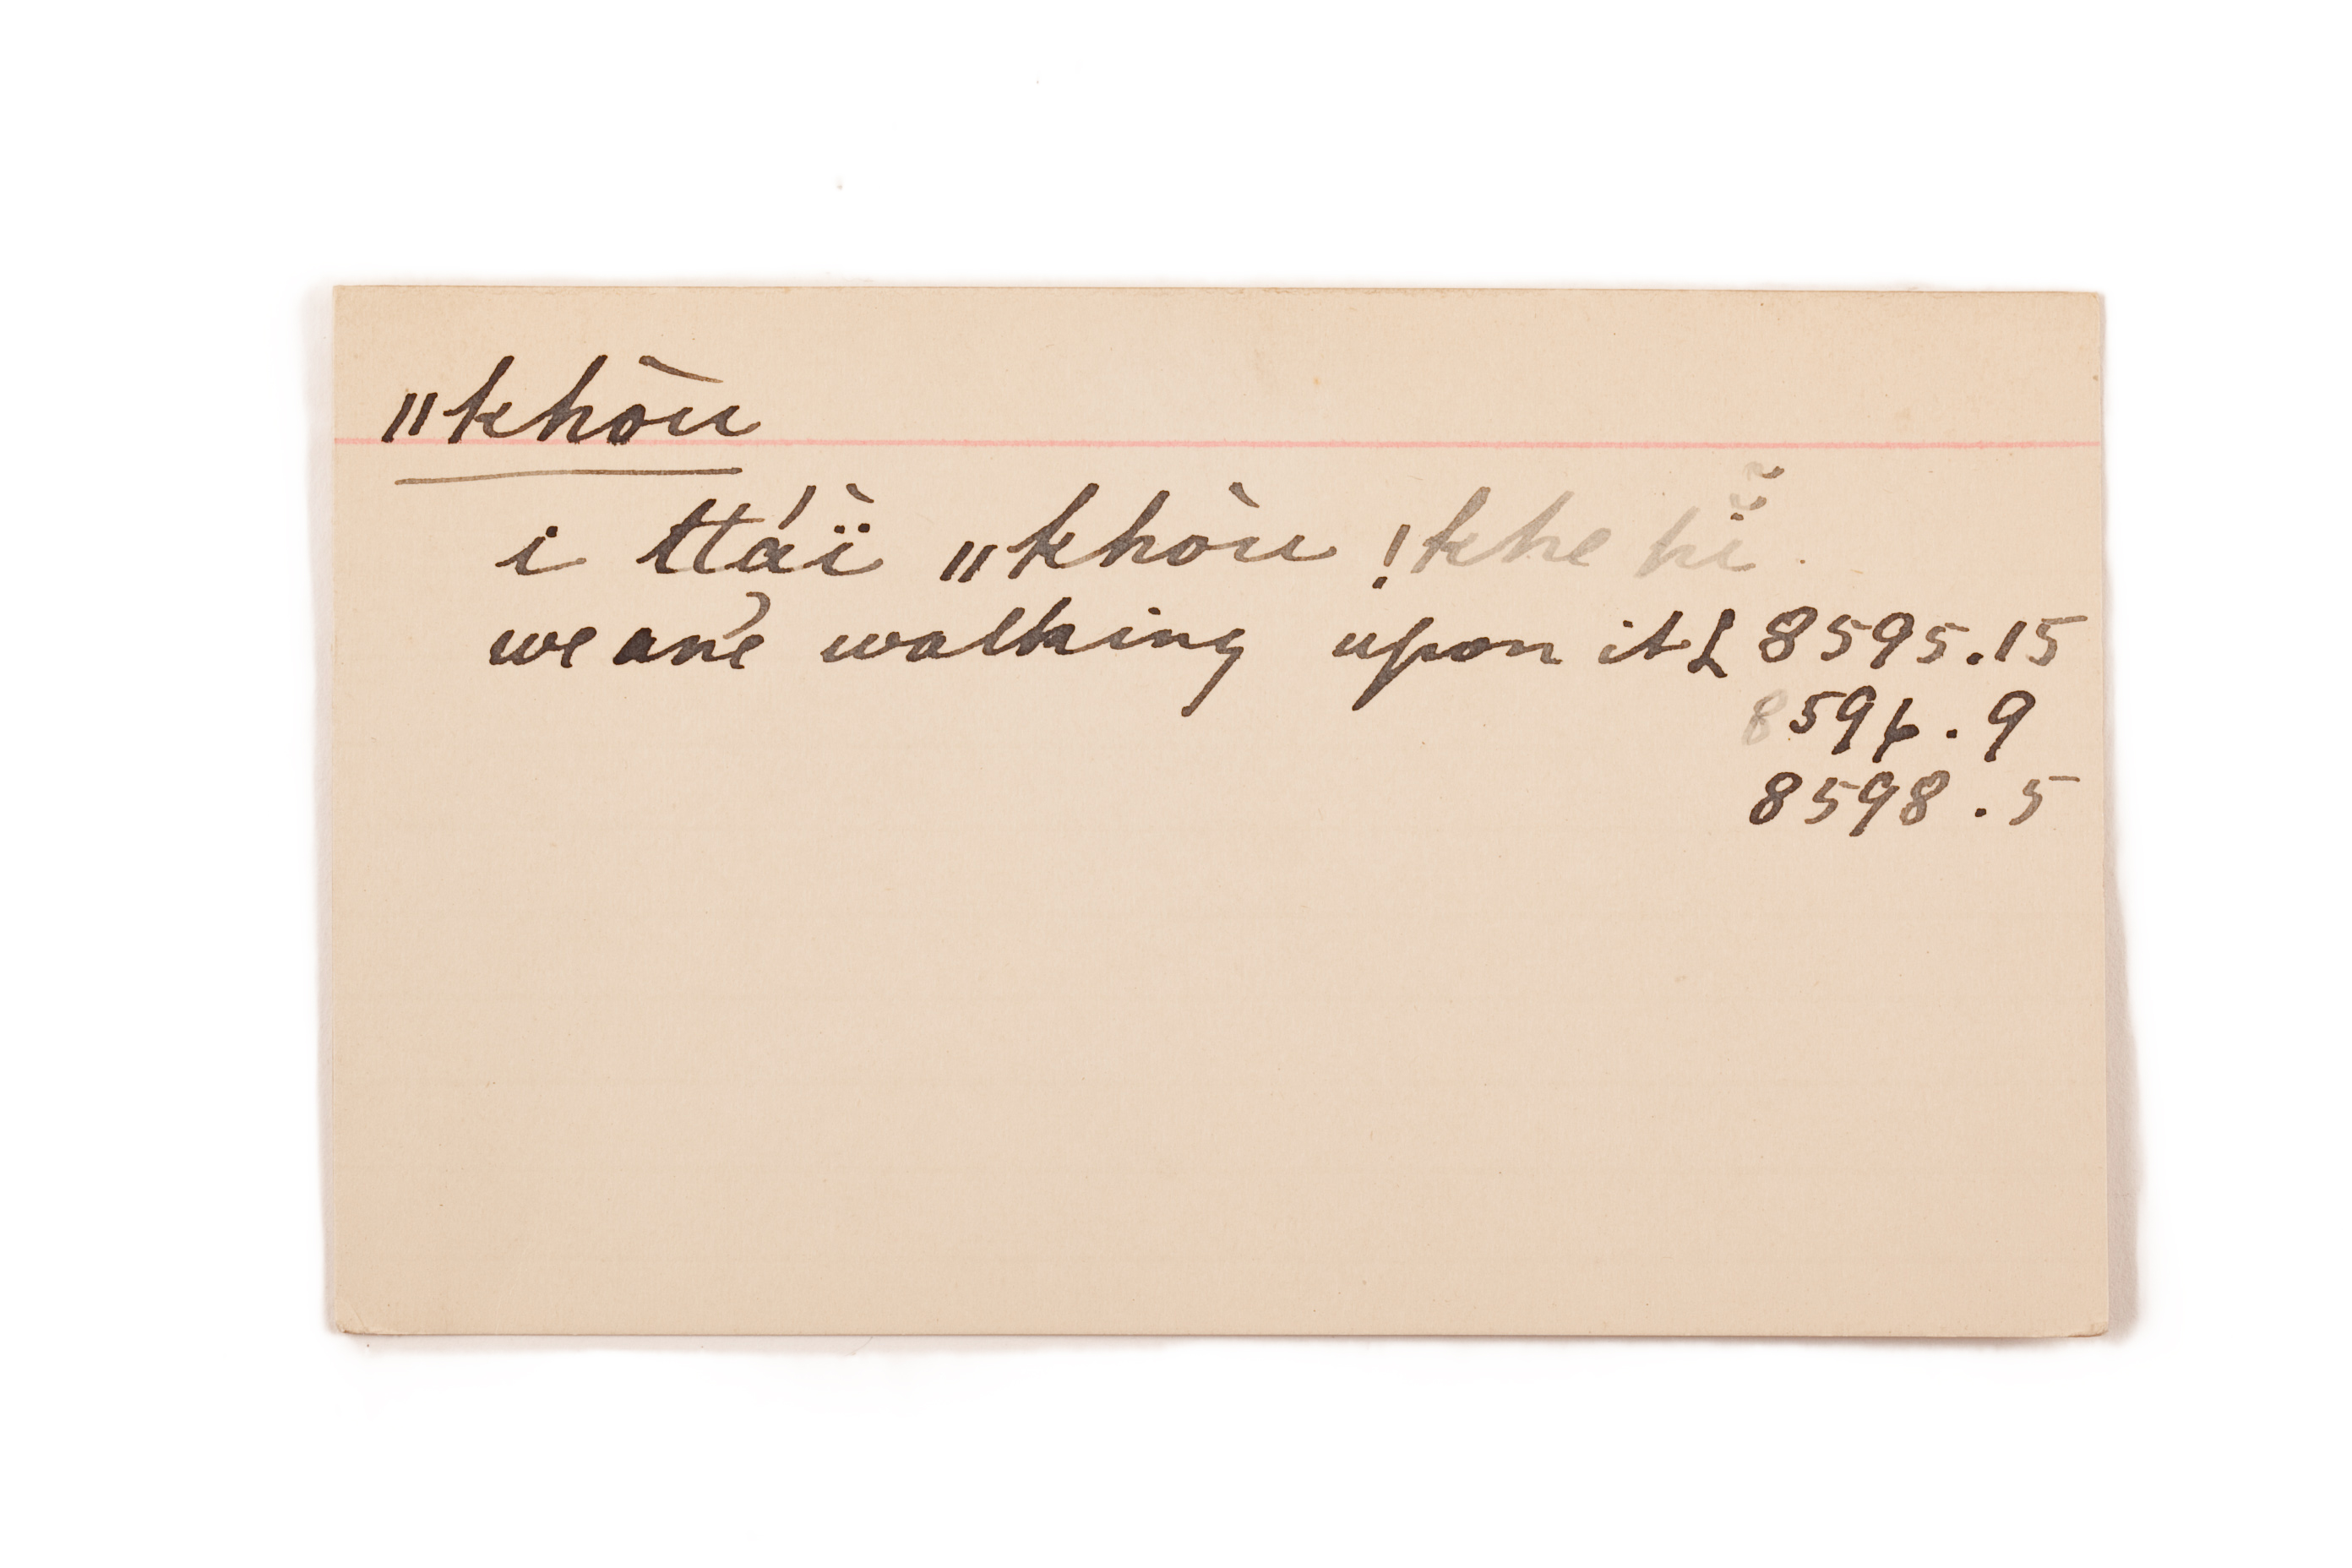 ǁkhòu
i ttáï̀ ǁkhòu !khe tĭ̈.
we are walking upon it L 8595.15
8596.9
8598.5